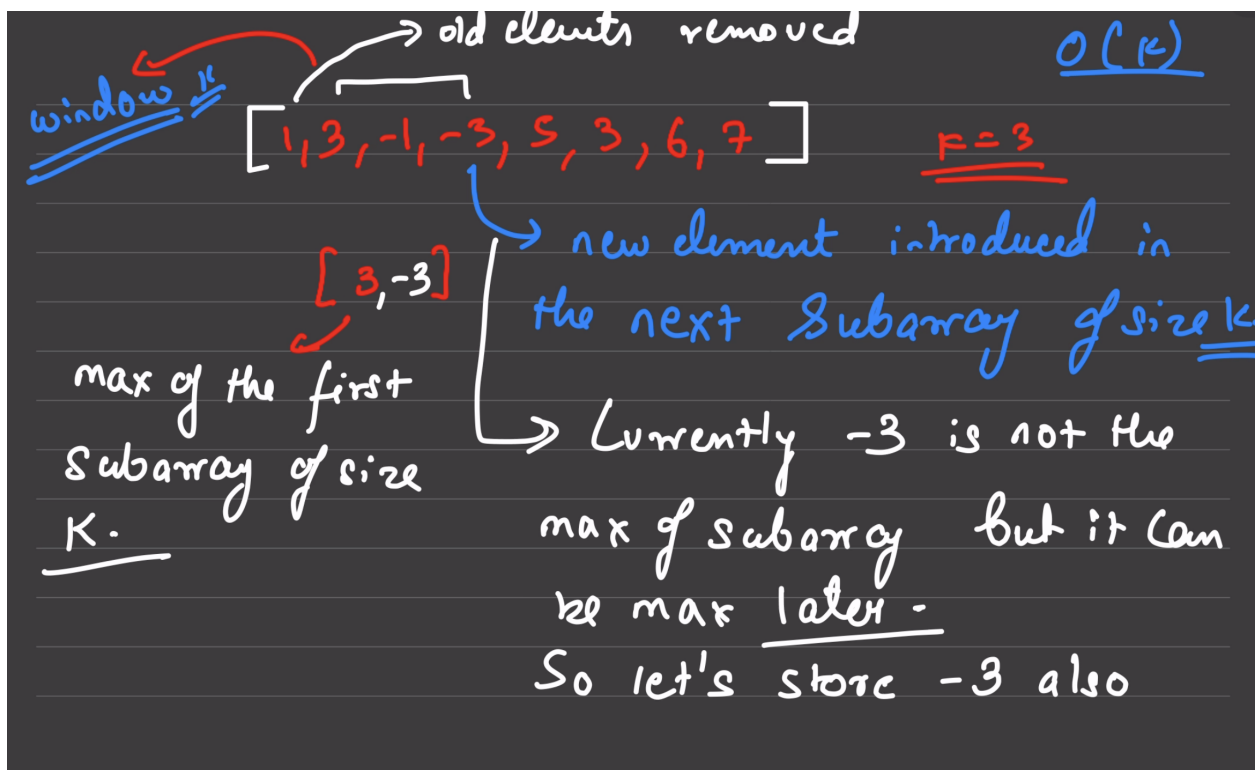 old elemnts removed
O(K)
window K
[1, 3, -1, -3, 5, 3, 6, 7]
K = 3
new element introduced in
the next Subarray of size K
[3, -3]
max of the first
Subarray of size
K.
Currently -3 is not the
max of subarray but it can
be max later.
So let's store -3 also